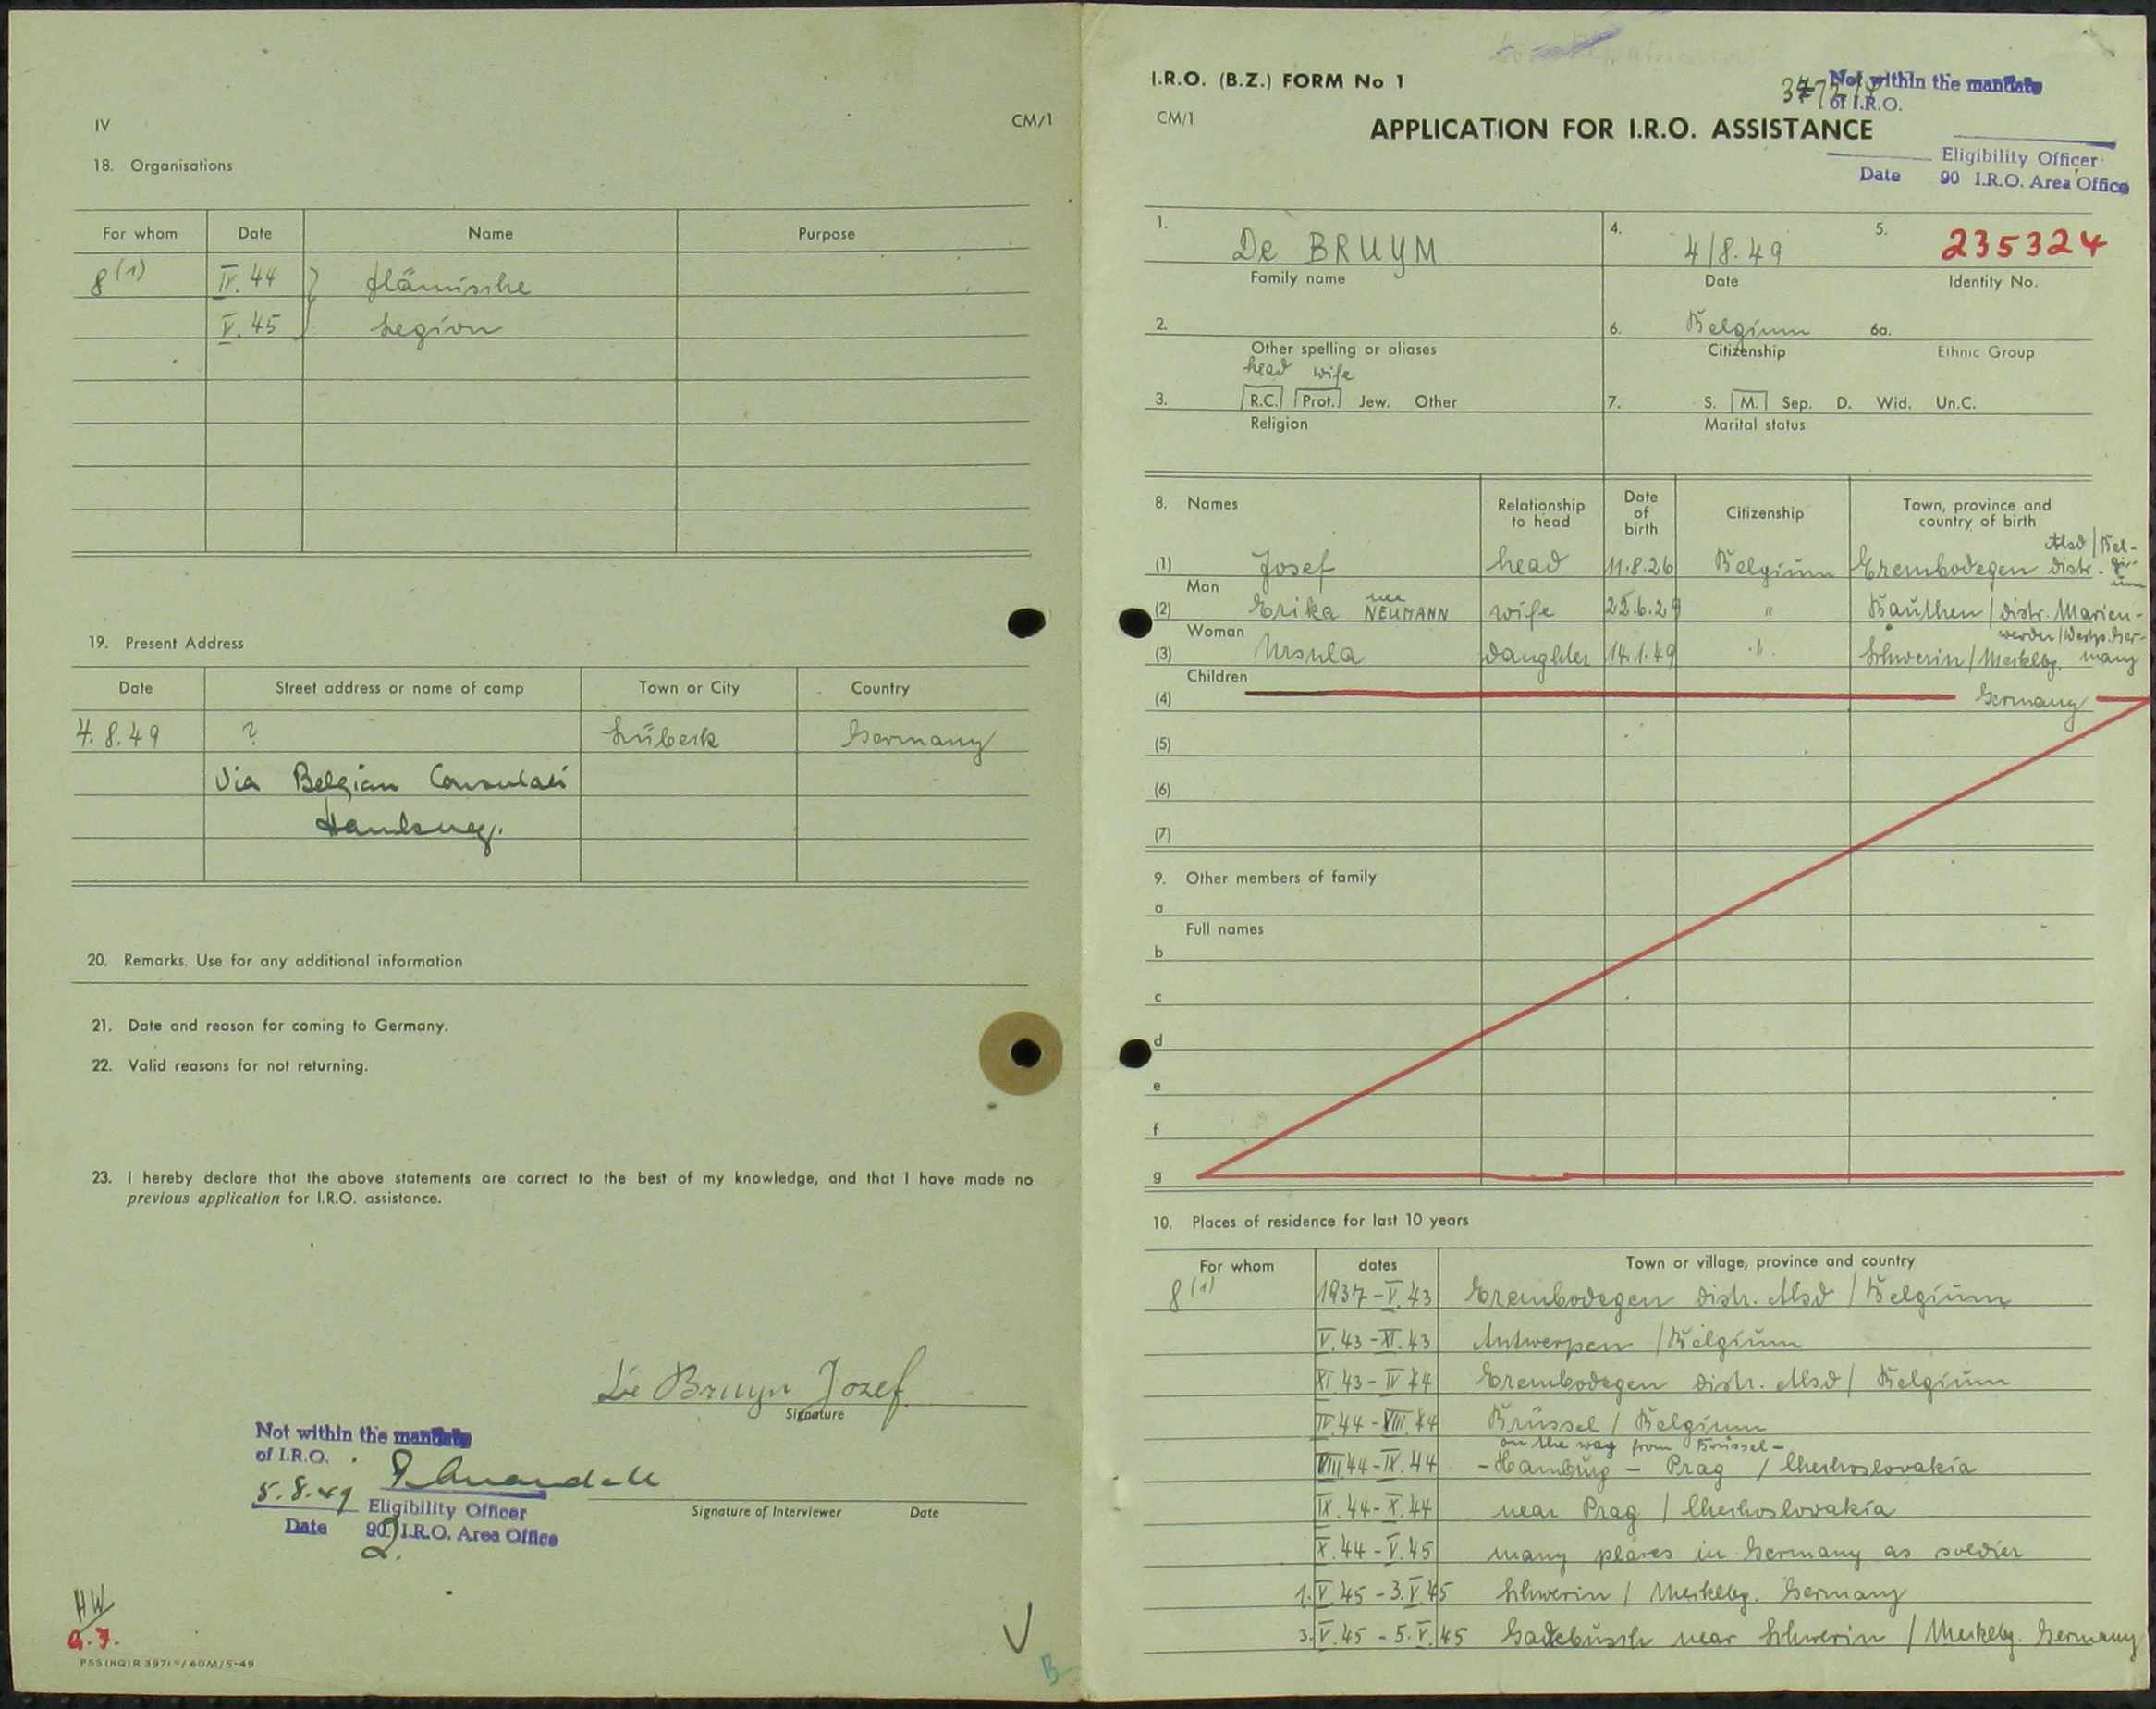 IV
CM/1
18. Organisations
For whom Date Name Purpose
8(1) IV. 44 flämische
V. 45 Legion
19. Present Address
Date Street address or name of camp Town or City Country
4. 8. 49 ? Lübeck Germany
Via Belgian Consulate
Hamburg.
20. Remarks. Use for any additional information
21. Date and reason for coming to Germany.
22. Valid reasons for not returning.
23. I hereby declare that the above statements are correct to the best of my knowledge, and that I have made no
previous application for I.R.O. assistance.
De Bruyn Jozef
Signature
Not within the mandate
of I.R.O.
5.8.49 Eligibility Officer
Date 90 I.R.O. Area Office
2.
Signature of Interviewer Date
HW
a.7.
PSS (HQ) R 3971 / 60M / 5-49
B
I.R.O. (B.Z.) FORM No 1
Not within the mandate
of I.R.O.
CM/1
APPLICATION FOR I.R.O. ASSISTANCE
Eligibility Officer
Date 90 I.R.O. Area Office
1. De BRUYM 4. 4/8. 49 5. 235324
Family name Date Identity No.
2. 6. Belgium 6a.
Other spelling or aliases Citizenship Ethnic Group
head wife
3. R.C. Prot. Jew. Other 7. S. M. Sep. D. Wid. Un.C.
Religion Marital status
8. Names Relationship to head Date of birth Citizenship Town, province and country of birth
(1) Josef head 11.8.26 Belgium Erembodegen distr. Alsd / Belgium
Man
(2) Erika nee NEUMANN wife 22.6.29 " Bauthen / distr. Marienwerder / Westps. Germany
Woman
(3) Ursula daughter 14.1.49 " Schwerin / Mecklbg.
Children
(4) Germany
(5)
(6)
(7)
9. Other members of family
a
Full names
b
c
d
e
f
g
10. Places of residence for last 10 years
For whom dates Town or village, province and country
8(1) 1937 - V. 43 Erembodegen distr. Alsd / Belgium
V. 43 - XI. 43 Antwerpen / Belgium
XI. 43 - IV 44 Erembodegen distr. Alsd / Belgium
IV. 44 - VIII. 44 Brüssel / Belgium
on the way from Brüssel -
VIII 44 - IX. 44 - Hamburg - Prag / Chechoslovakia
IX. 44 - X. 44 near Prag / Chechoslovakia
X. 44 - V. 45 many places in Germany as soldier
1. V. 45 - 3. V. 45 Schwerin / Mecklbg. Germany
3. V. 45 - 5. V. 45 Gadebusch near Schwerin / Mecklbg. Germany